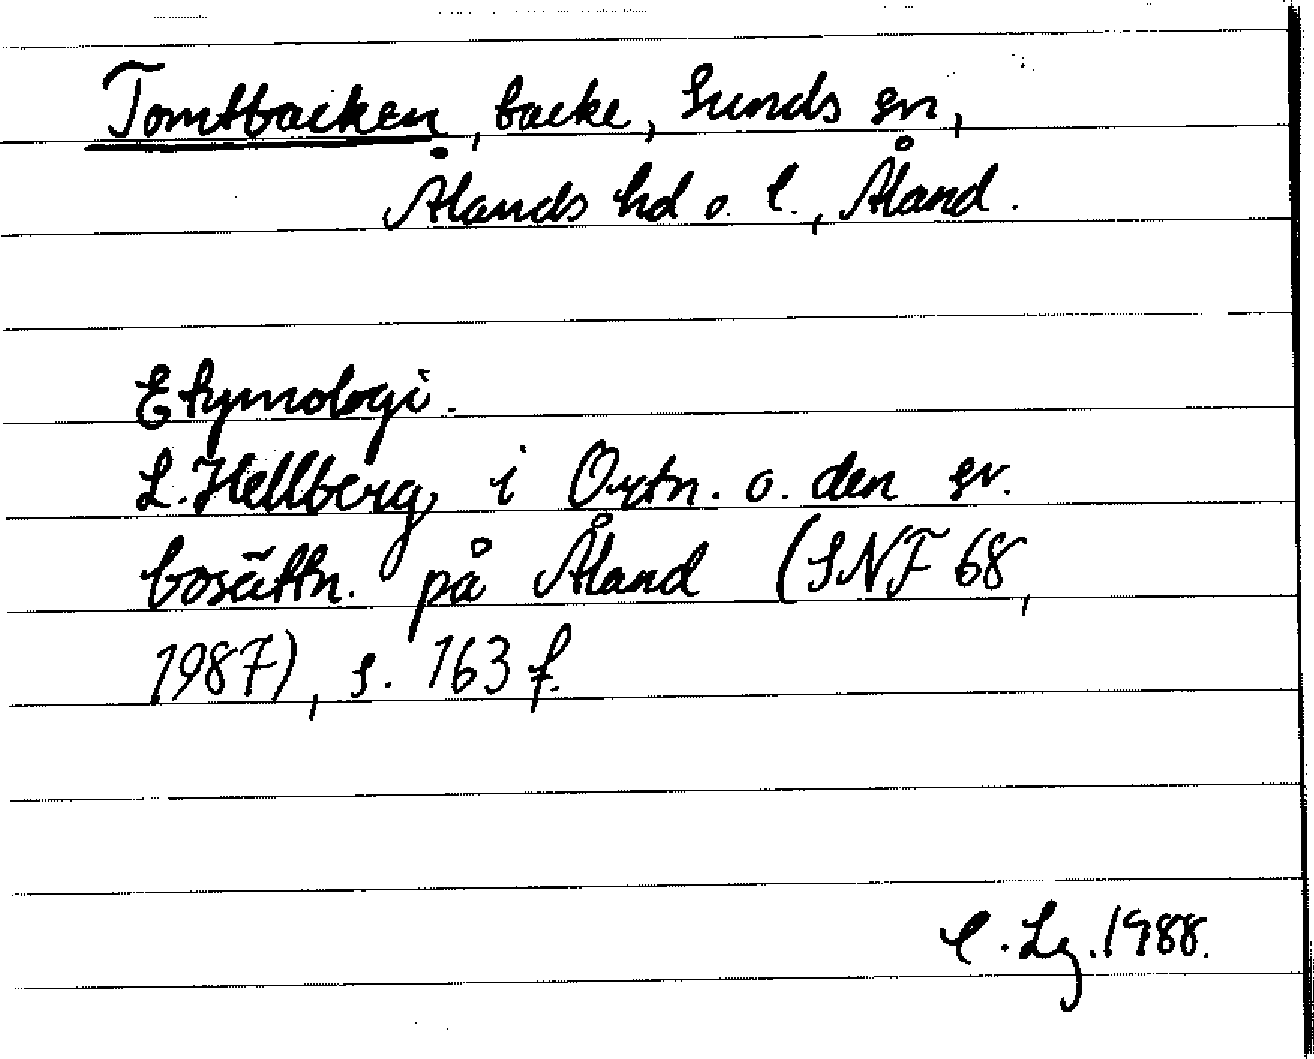 Tomtbacken, backe, Sunds sn,
Ålands hd o. l., Åland.
Etymologi.
L. Hellberg, i Ortn. o. den sv.
bosättn. på Åland (SNF 68,
1987), s. 163 f.
C. Lg. 1988.